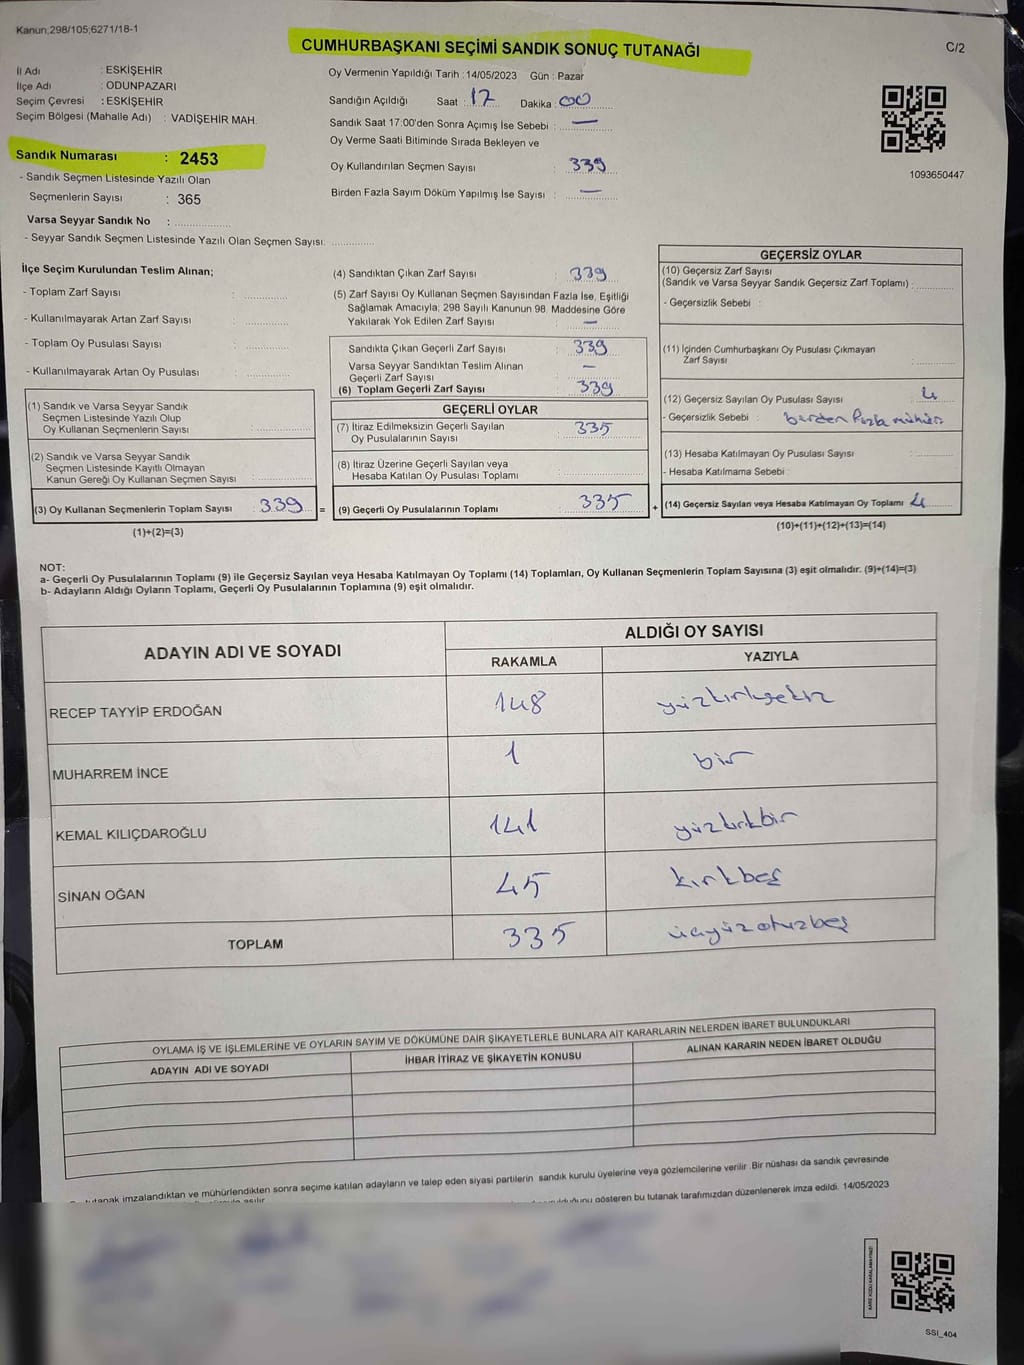 Kanun;298/105;6271/18-1
CUMHURBAŞKANI SEÇİMİ SANDIK SONUÇ TUTANAĞI
C/2
İl Adı : ESKİŞEHİR
İlçe Adı : ODUNPAZARI
Seçim Çevresi : ESKİŞEHİR
Seçim Bölgesi (Mahalle Adı) : VADİŞEHİR MAH.
Sandık Numarası : 2453
- Sandık Seçmen Listesinde Yazılı Olan
Seçmenlerin Sayısı : 365
Varsa Seyyar Sandık No :
- Seyyar Sandık Seçmen Listesinde Yazılı Olan Seçmen Sayısı:
Oy Vermenin Yapıldığı Tarih : 14/05/2023 Gün : Pazar
Sandığın Açıldığı Saat : 17 Dakika : 00
Sandık Saat 17:00'den Sonra Açımış İse Sebebi : —
Oy Verme Saati Bitiminde Sırada Bekleyen ve
Oy Kullandırılan Seçmen Sayısı : 339
Birden Fazla Sayım Döküm Yapılmış İse Sayısı : —
1093650447
İlçe Seçim Kurulundan Teslim Alınan;
- Toplam Zarf Sayısı :
- Kullanılmayarak Artan Zarf Sayısı :
- Toplam Oy Pusulası Sayısı :
- Kullanılmayarak Artan Oy Pusulası :
(1) Sandık ve Varsa Seyyar Sandık
Seçmen Listesinde Yazılı Olup
Oy Kullanan Seçmenlerin Sayısı :
(2) Sandık ve Varsa Seyyar Sandık
Seçmen Listesinde Kayıtlı Olmayan
Kanun Gereği Oy Kullanan Seçmen Sayısı :
(3) Oy Kullanan Seçmenlerin Toplam Sayısı : 339 =
(1)+(2)=(3)
(4) Sandıktan Çıkan Zarf Sayısı : 339
(5) Zarf Sayısı Oy Kullanan Seçmen Sayısından Fazla İse, Eşitliği
Sağlamak Amacıyla; 298 Sayılı Kanunun 98. Maddesine Göre
Yakılarak Yok Edilen Zarf Sayısı : —
Sandıkta Çıkan Geçerli Zarf Sayısı : 339
Varsa Seyyar Sandıktan Teslim Alınan
Geçerli Zarf Sayısı : —
(6) Toplam Geçerli Zarf Sayısı : 339
GEÇERLİ OYLAR
(7) İtiraz Edilmeksizin Geçerli Sayılan
Oy Pusulalarının Sayısı : 335
(8) İtiraz Üzerine Geçerli Sayılan veya
Hesaba Katılan Oy Pusulası Toplamı :
(9) Geçerli Oy Pusulalarının Toplamı : 335 +
GEÇERSİZ OYLAR
(10) Geçersiz Zarf Sayısı
(Sandık ve Varsa Seyyar Sandık Geçersiz Zarf Toplamı) :
- Geçersizlik Sebebi :
(11) İçinden Cumhurbaşkanı Oy Pusulası Çıkmayan
Zarf Sayısı :
(12) Geçersiz Sayılan Oy Pusulası Sayısı : 4
- Geçersizlik Sebebi : birden fazla mühür
(13) Hesaba Katılmayan Oy Pusulası Sayısı :
- Hesaba Katılmama Sebebi :
(14) Geçersiz Sayılan veya Hesaba Katılmayan Oy Toplamı : 4
(10)+(11)+(12)+(13)=(14)
NOT:
a- Geçerli Oy Pusulalarının Toplamı (9) ile Geçersiz Sayılan veya Hesaba Katılmayan Oy Toplamı (14) Toplamları, Oy Kullanan Seçmenlerin Toplam Sayısına (3) eşit olmalıdır. (9)+(14)=(3)
b- Adayların Aldığı Oyların Toplamı, Geçerli Oy Pusulalarının Toplamına (9) eşit olmalıdır.
ADAYIN ADI VE SOYADI ALDIĞI OY SAYISI
RAKAMLA YAZIYLA
RECEP TAYYİP ERDOĞAN 148 yüzkırksekiz
MUHARREM İNCE 1 bir
KEMAL KILIÇDAROĞLU 141 yüzkırkbir
SİNAN OĞAN 45 kırkbeş
TOPLAM 335 üçyüzotuzbeş
OYLAMA İŞ VE İŞLEMLERİNE VE OYLARIN SAYIM VE DÖKÜMÜNE DAİR ŞİKAYETLERLE BUNLARA AİT KARARLARIN NELERDEN İBARET BULUNDUKLARI
ADAYIN ADI VE SOYADI İHBAR İTİRAZ VE ŞİKAYETİN KONUSU ALINAN KARARIN NEDEN İBARET OLDUĞU
tutanak imzalandıktan ve mühürlendikten sonra seçime katılan adayların ve talep eden siyasi partilerin sandık kurulu üyelerine veya gözlemcilerine verilir. Bir nüshası da sandık çevresinde
gösteren bu tutanak tarafımızdan düzenlenerek imza edildi. 14/05/2023
SSI_404